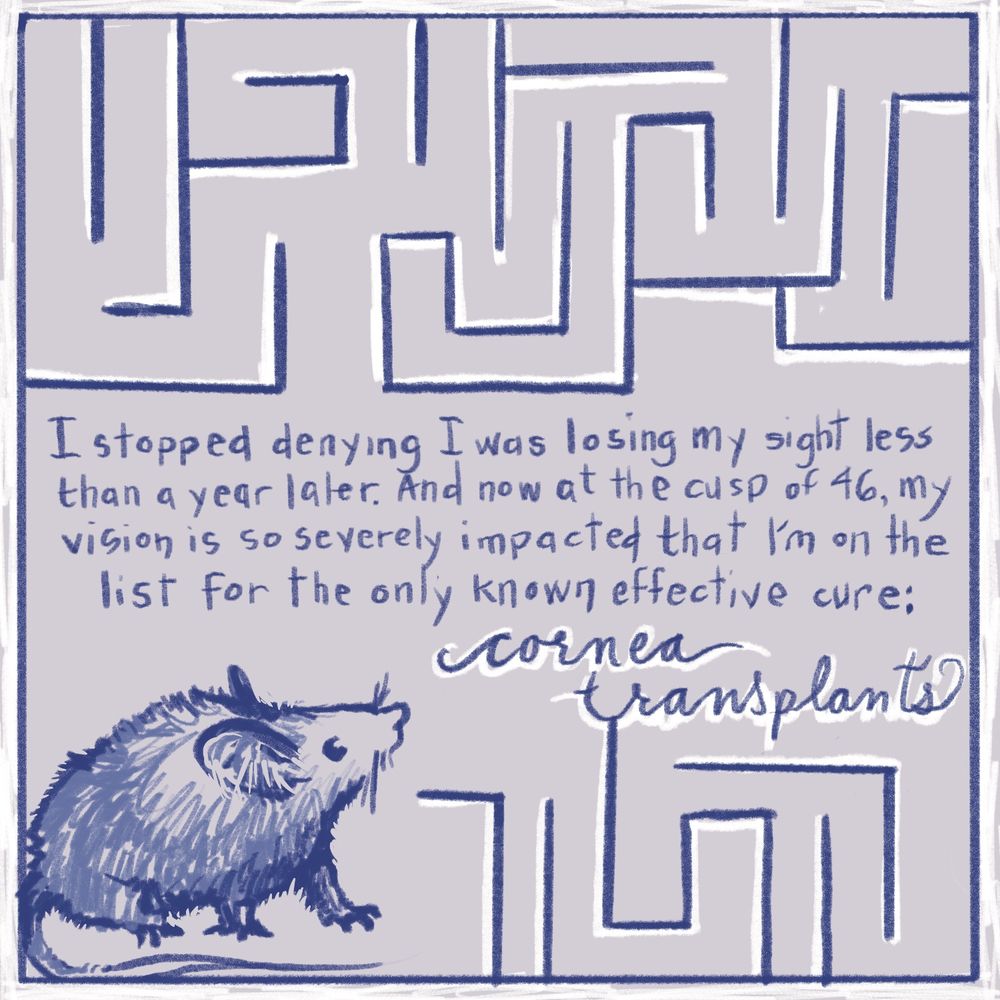 I stopped denying I was losing my sight less
than a year later. And now at the cusp of 46, my
vision is so severely impacted that I'm on the
list for the only known effective cure:
cornea
transplants